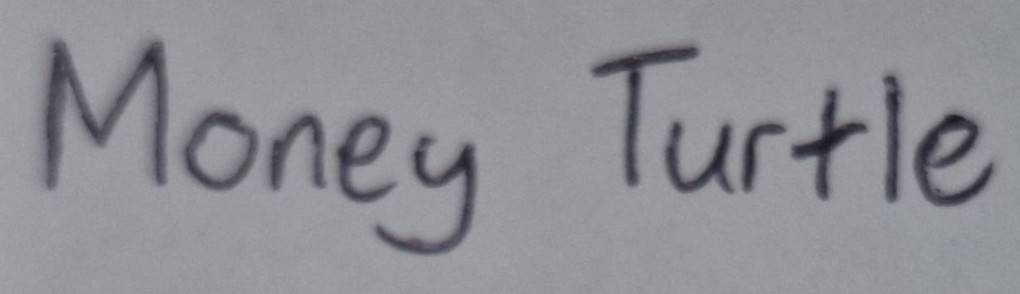 Money Turtle